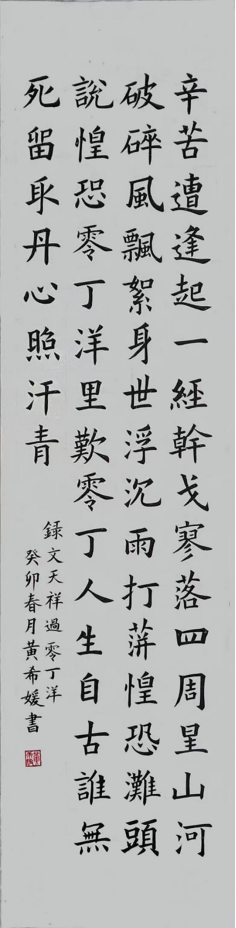 辛苦遭逢起一經幹戈寥落四周星山河
破碎風飄絮身世浮沉雨打萍惶恐灘頭
說惶恐零丁洋里歎零丁人生自古誰無
死留取丹心照汗青
錄文天祥過零丁洋
癸卯春月黃希媛書